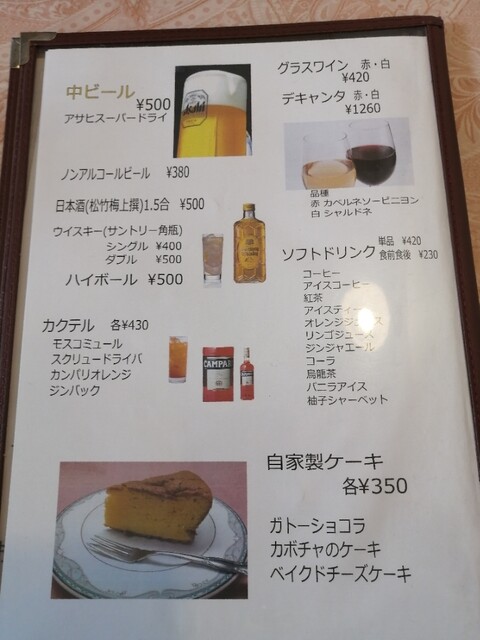 中ビール
¥500
アサヒスーパードライ
Asahi
ノンアルコールビール ¥380
日本酒(松竹梅上撰)1.5合 ¥500
ウイスキー(サントリー角瓶)
シングル ¥400
ダブル ¥500
ハイボール ¥500
カクテル 各¥430
モスコミュール
スクリュードライバ
カンパリオレンジ
ジンバック
CAMPARI
グラスワイン 赤・白
¥420
デキャンタ 赤・白
¥1260
品種
赤 カベルネソービニヨン
白 シャルドネ
ソフトドリンク 単品 ¥420
食前食後 ¥230
コーヒー
アイスコーヒー
紅茶
アイスティー
オレンジジュース
リンゴジュース
ジンジャエール
コーラ
烏龍茶
バニラアイス
柚子シャーベット
自家製ケーキ
各¥350
ガトーショコラ
カボチャのケーキ
ベイクドチーズケーキ